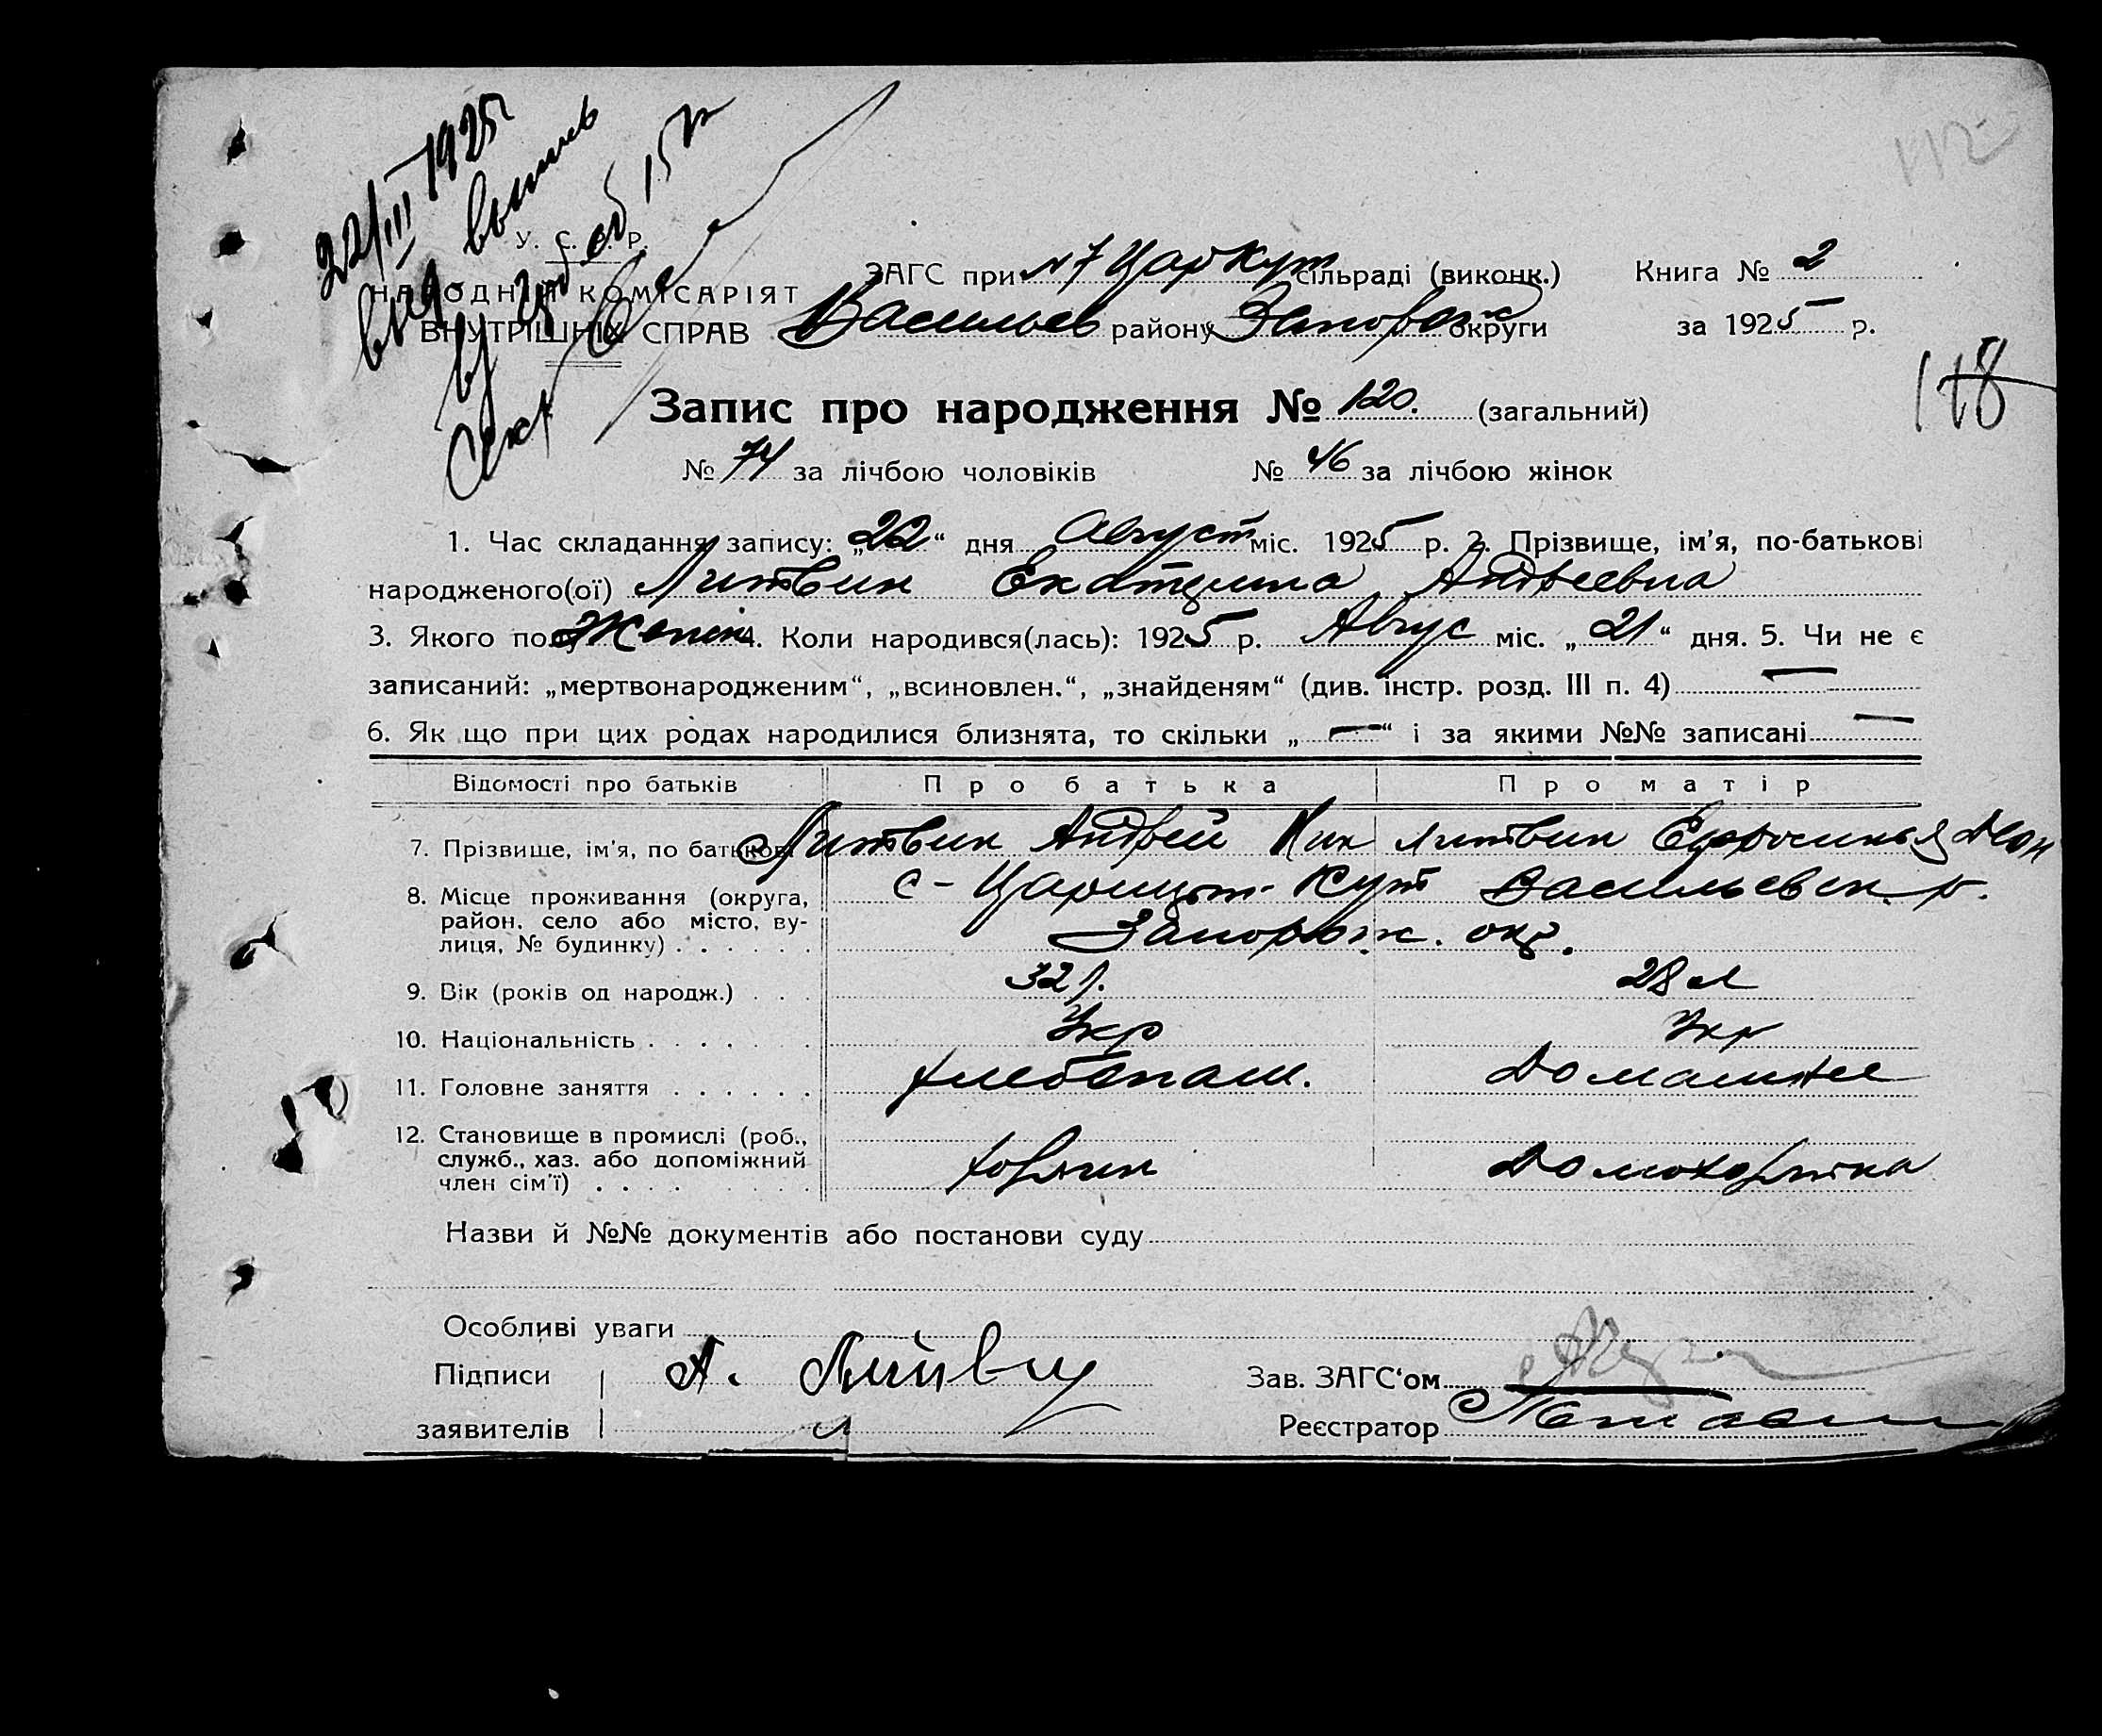 22/III 1925
У. С. С. Р.
НАРОДНІЙ КОМІСАРІЯТ
ВНУТРІШНІХ СПРАВ
ЗАГС при №7 Царкут сільраді (виконк.) Книга № 2
Васильев району Запорож округи за 1925 р.
118
Запис про народження № 120. (загальний)
№ 74 за лічбою чоловіків № 46 за лічбою жінок
1. Час складання запису: „22“ дня Август міс. 1925 р. 2. Прізвище, ім'я, по-батькові
народженого(ої) Литвин Екатерина Андреевна
3. Якого полу Женск 4. Коли народився(лась): 1925 р. Авгус міс. „21“ дня. 5. Чи не є
записаний: „мертвонародженим“, „всиновлен.“, „знайденям“ (див. інстр. розд. III п. 4) —
6. Як що при цих родах народилися близнята, то скільки „—“ і за якими №№ записані —
Відомості про батьків Про батька Про матір
7. Прізвище, ім'я, по батькові Литвин Андрей Ник Литвин Ефросинья Леон
8. Місце проживання (округа, с- Царицын-Кут Васильевск. р.
район, село або місто, ву-
лиця, № будинку) . . . . . Запорож. окр.
9. Вік (років од народж.) . . . 32 г. 28 л
10. Національність . . . . . . . Укр Укр
11. Головне заняття . . . . . . хлебопаш. Домашнее
12. Становище в промислі (роб.,
служб., хаз. або допоміжний хозяин Домохозяйка
член сім'ї) . . . .
Назви й №№ документів або постанови суду
Особливі уваги
Підписи А. Литвин Зав. ЗАГС'ом
заявителів Реєстратор